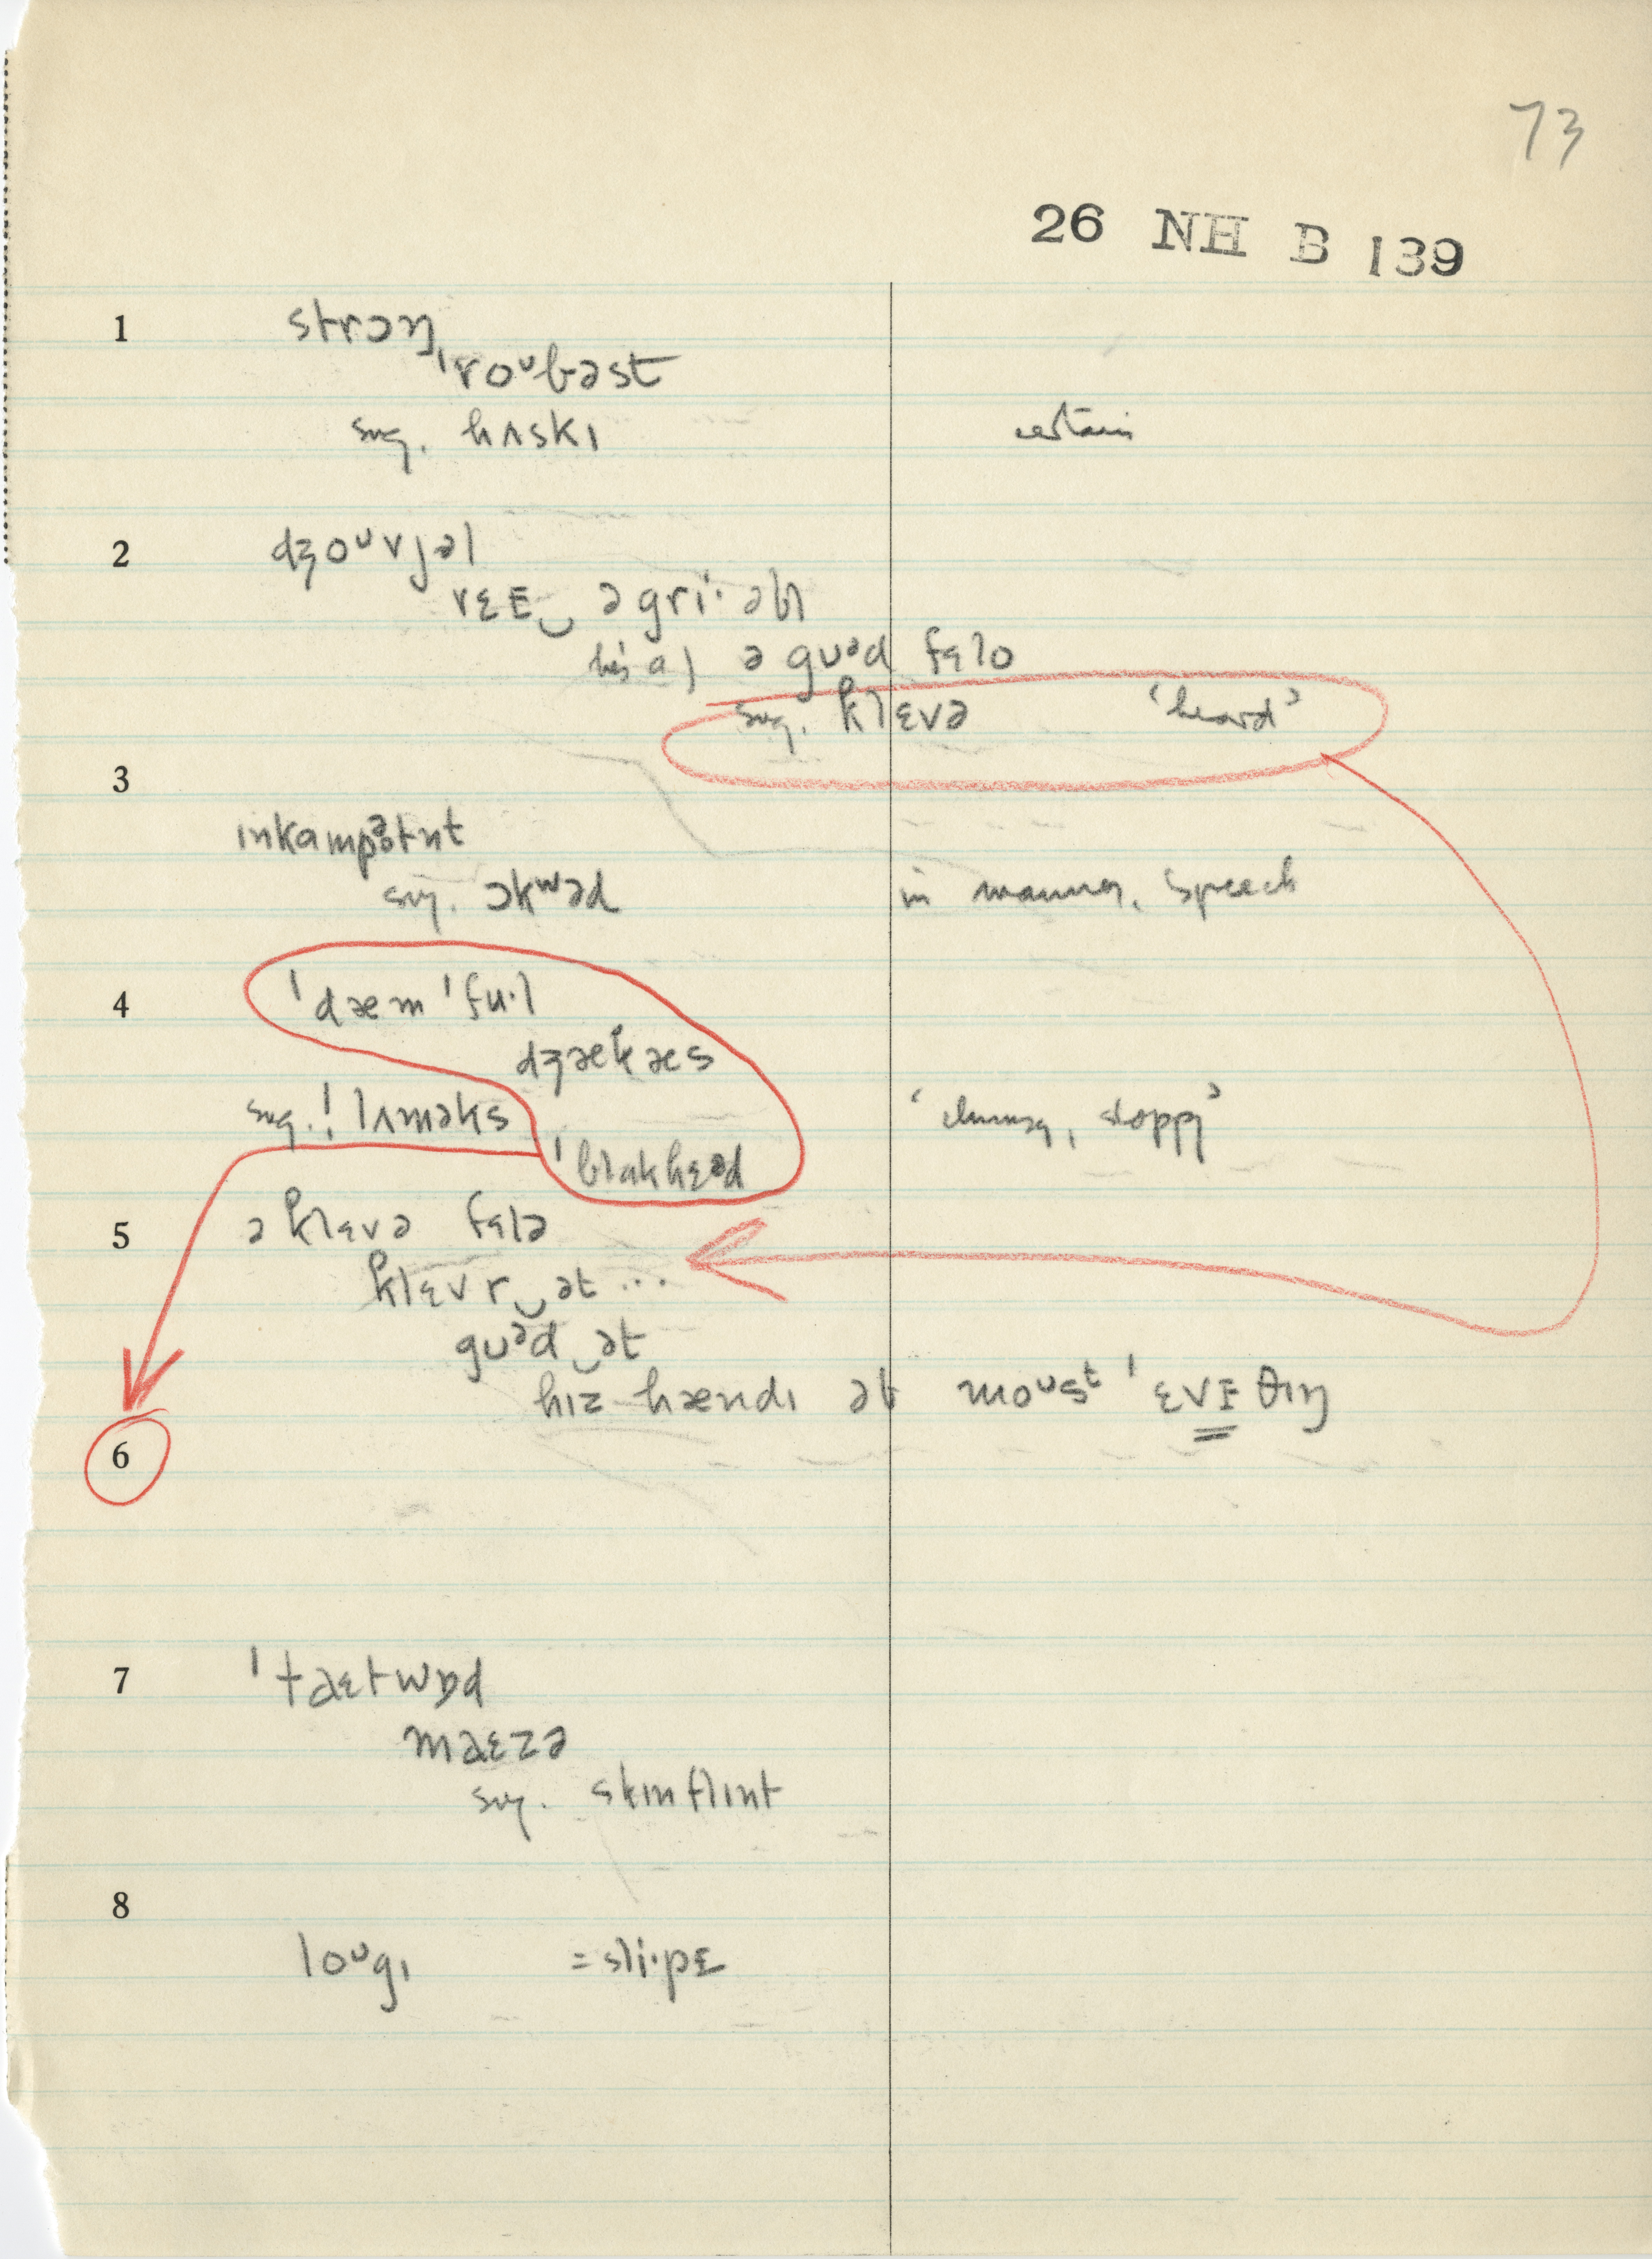 73
26 NH B 139
1 strɔŋ
ˈroᴜbəst
sug. hʌskɪ certain
2 dʒoᴜvjəl
vɛɛ‿əgri·əbl
he's a ə gᴜᵊd fɛlo
sug. klɛvə 'heard'
3
ɪnkampətnt
sug. ɔkʷəd in manner, speech
4 ˈdæm ˈfu·l
dʒækæs
sug. ! lʌməks 'clumsy, sloppy'
ˈblakhɛᵊd
5 ə klɛvə fɛlə
klɛvr‿ət ...
gᴜᵊd‿ət
hɪz hændɪ ət moᴜsᵗ ˈɛvɪθɪŋ
6
7 ˈtaɛtwɒd
maɛzə
sug. skɪnflɪnt
8
loᴜgɪ = sli·pɛ